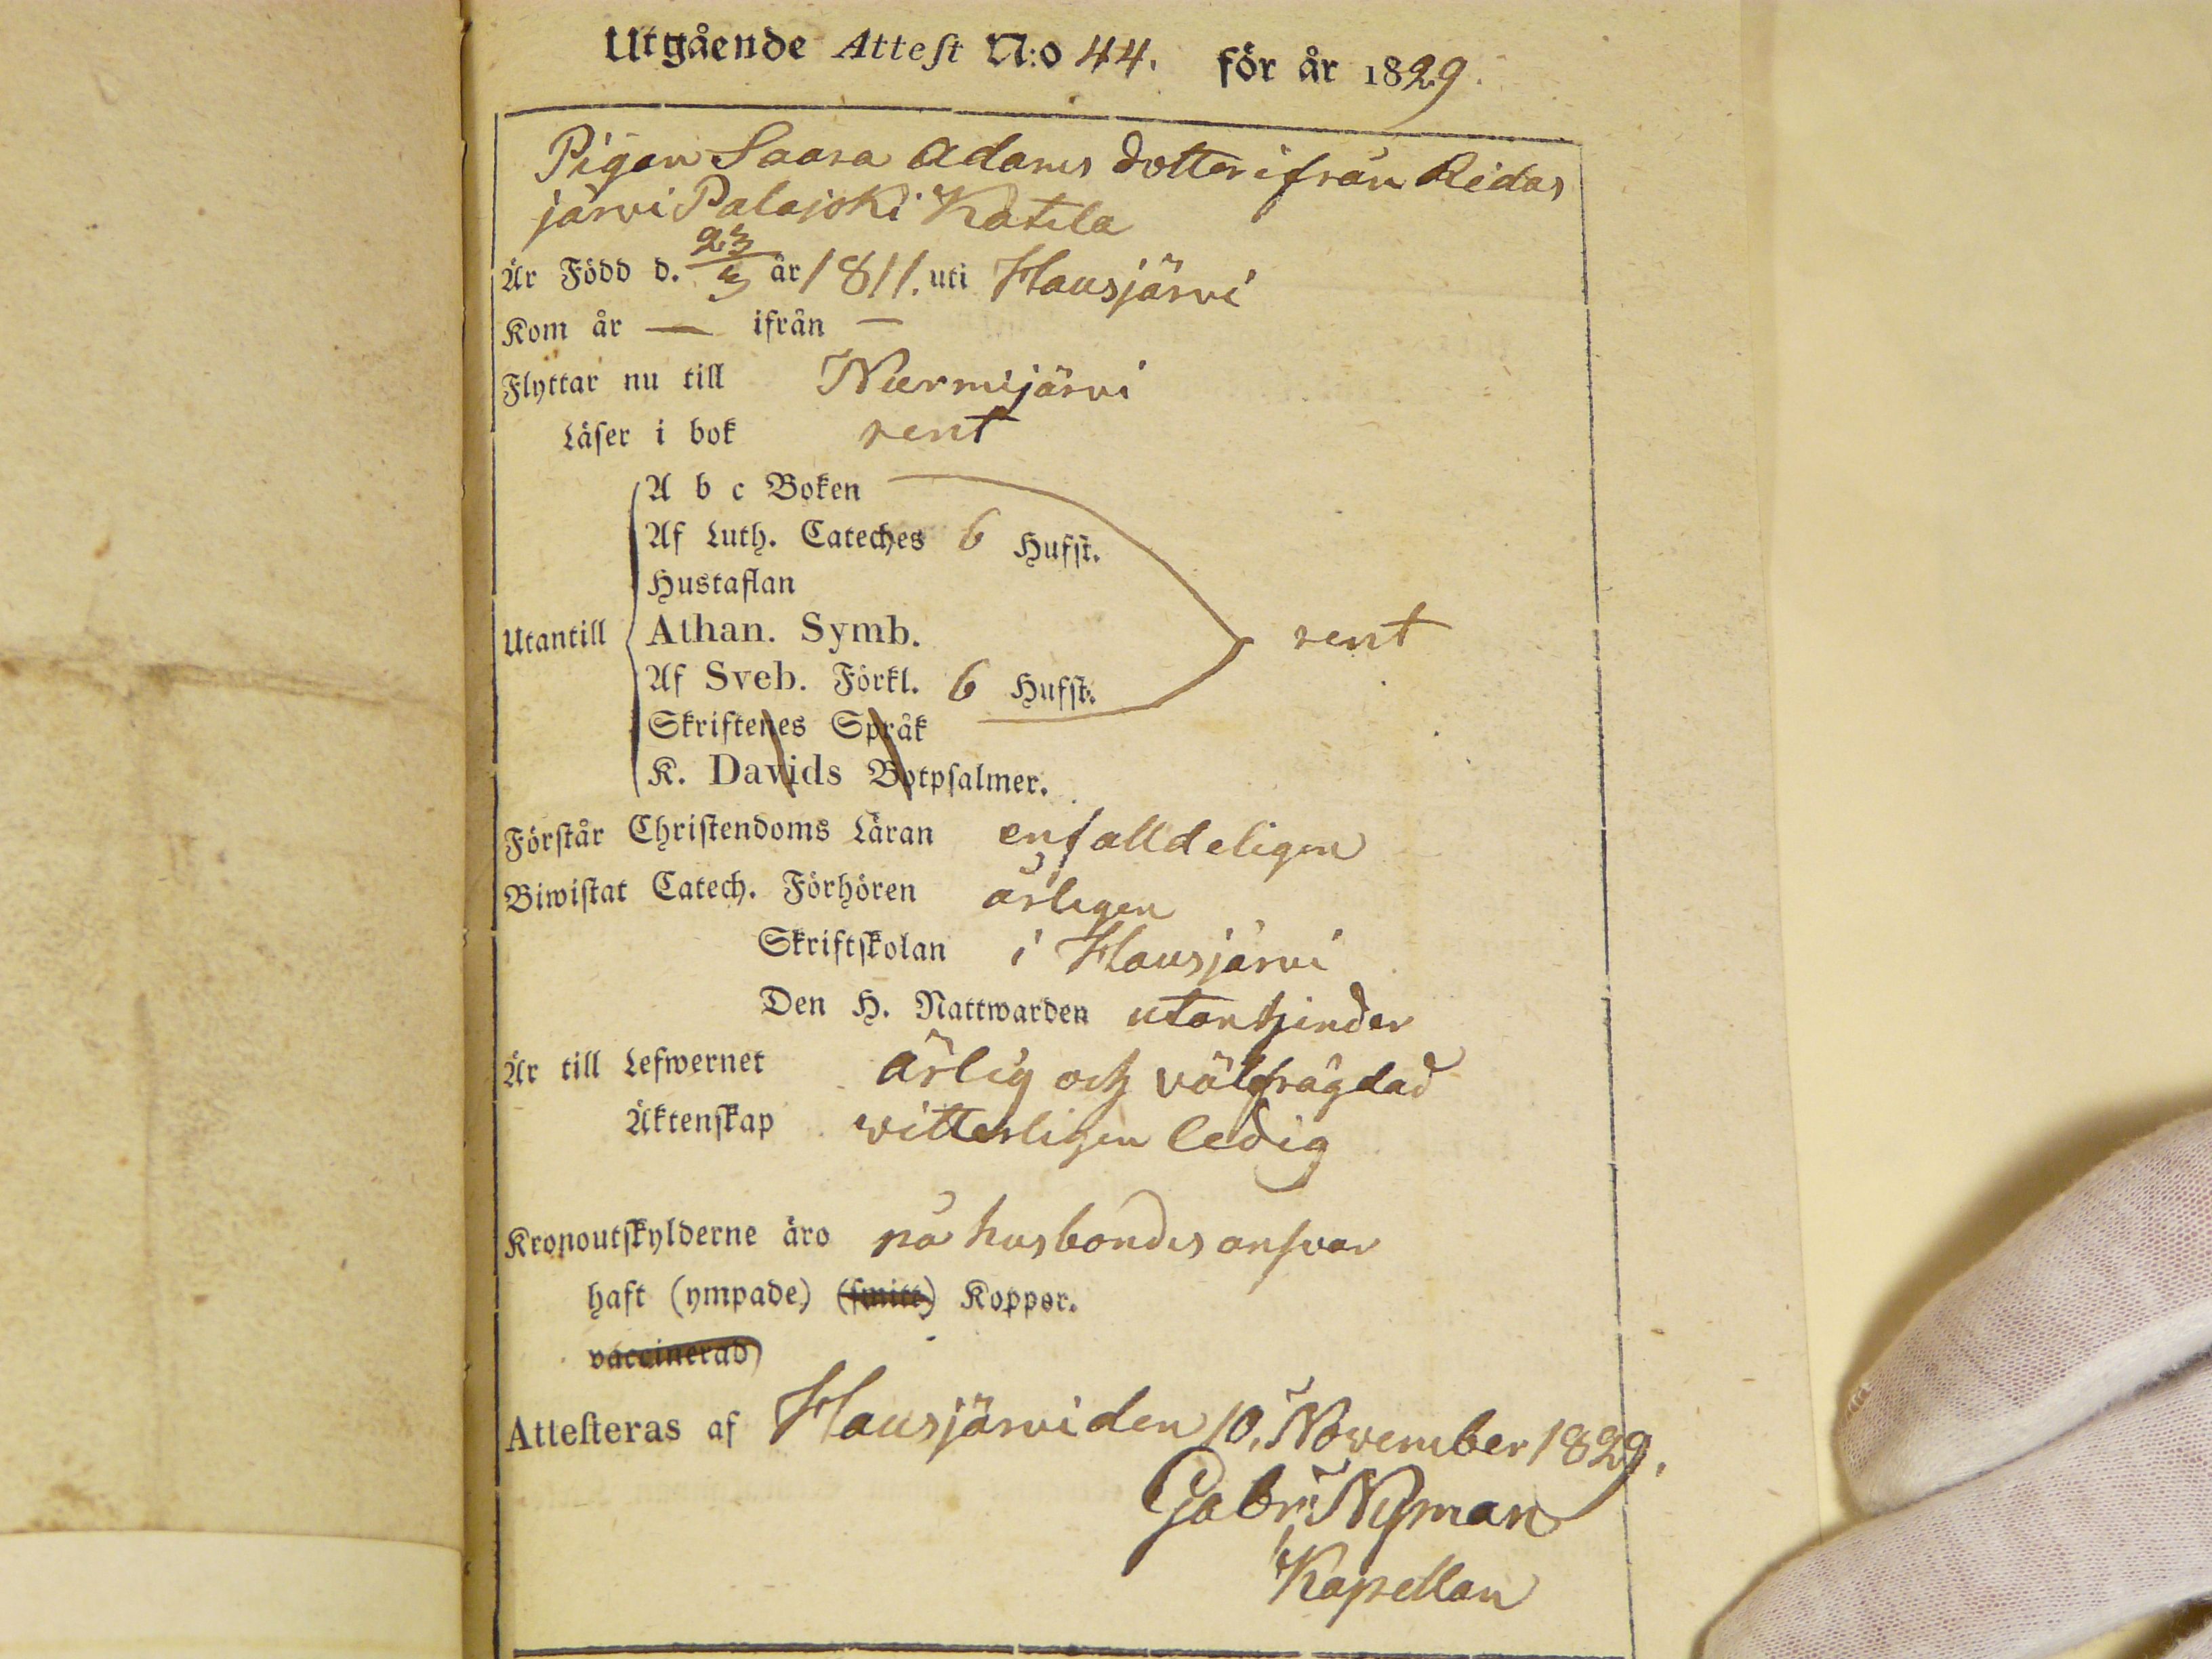 Utgående Attest N:o 44. för år 1829.
Pigan Saara Adams dotter ifrån Ridas
järvi Palojoki Katila
Är Född d. 23/3 år 1811. uti Hausjärvi
Kom år — ifrån —
Flyttar nu till Nurmijärvi
Läser i bok rent
A b c Boken
Af Luth. Cateches 6 Hufst.
Hustaflan
Utantill Athan. Symb. rent
Af Sveb. Förkl. 6 Hufst.
Skriftenes Språk
K. Davids Botpsalmer.
Förstår Christendoms Läran enfalldeligen
Biwistat Catech. Förhören årligen
Skriftskolan i Hausjärvi
Den H. Nattwarden utan hinder
Är till Lefwernet ärlig och välfrägdad
Äktenskap witterligen ledig
Kronoutskylderne äro på husbondes ansvar
haft (ympade) (smitt) Koppor.
vaccinerad
Attesteras af Hausjärvi den 10. November 1829.
Gabr: Nyman
Kapellan